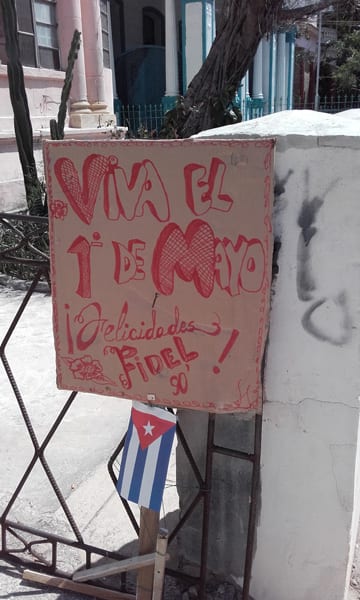 VIVA EL
1º DE MAYO
¡Felicidades
FIDEL 90!